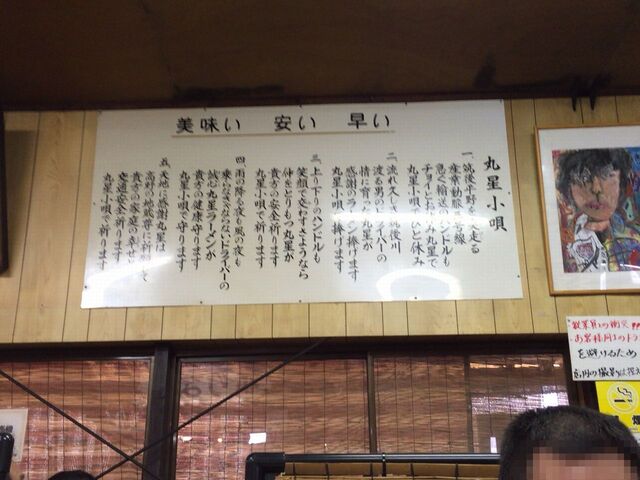 美味い 安い 早い
丸星小唄
一、筑後平野を突走る
産業動脈三号線
急ぐ輸送のハンドルも
チョイとお休み丸星で
丸星小唄でひと休み
二、流れ久しい筑後川
渡る男のドライバーの
情に育った丸星が
感謝のラーメン捧げます
丸星小唄捧げます
三、上り下りのハンドルも
笑顔で交わすさようなら
仲をとりもつ丸星が
貴方の安全祈ります
丸星小唄で祈ります
四、雨の降る夜も風の夜も
乗らなきゃならないドライバーの
誠心丸星ラーメンが
貴方の健康守ります
丸星小唄で守ります
五、天地に感謝丸星は
高野の地蔵尊に祈願して
貴方の家庭の幸せと
交通安全祈ります
丸星小唄で祈ります
従業員との衝突!!
お客様同士のトラ
を避けるため